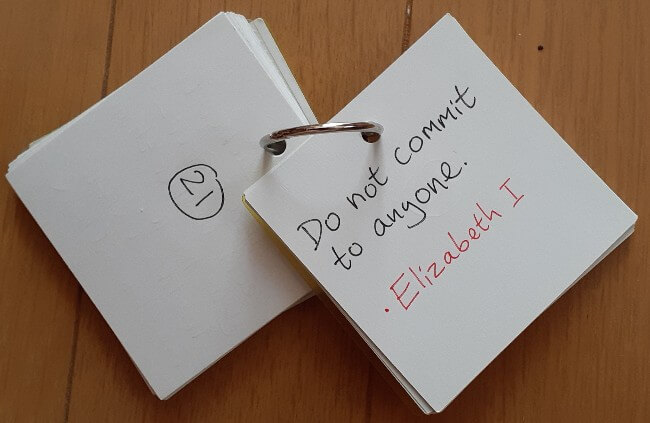 21
Do not commit
to anyone.
· Elizabeth I